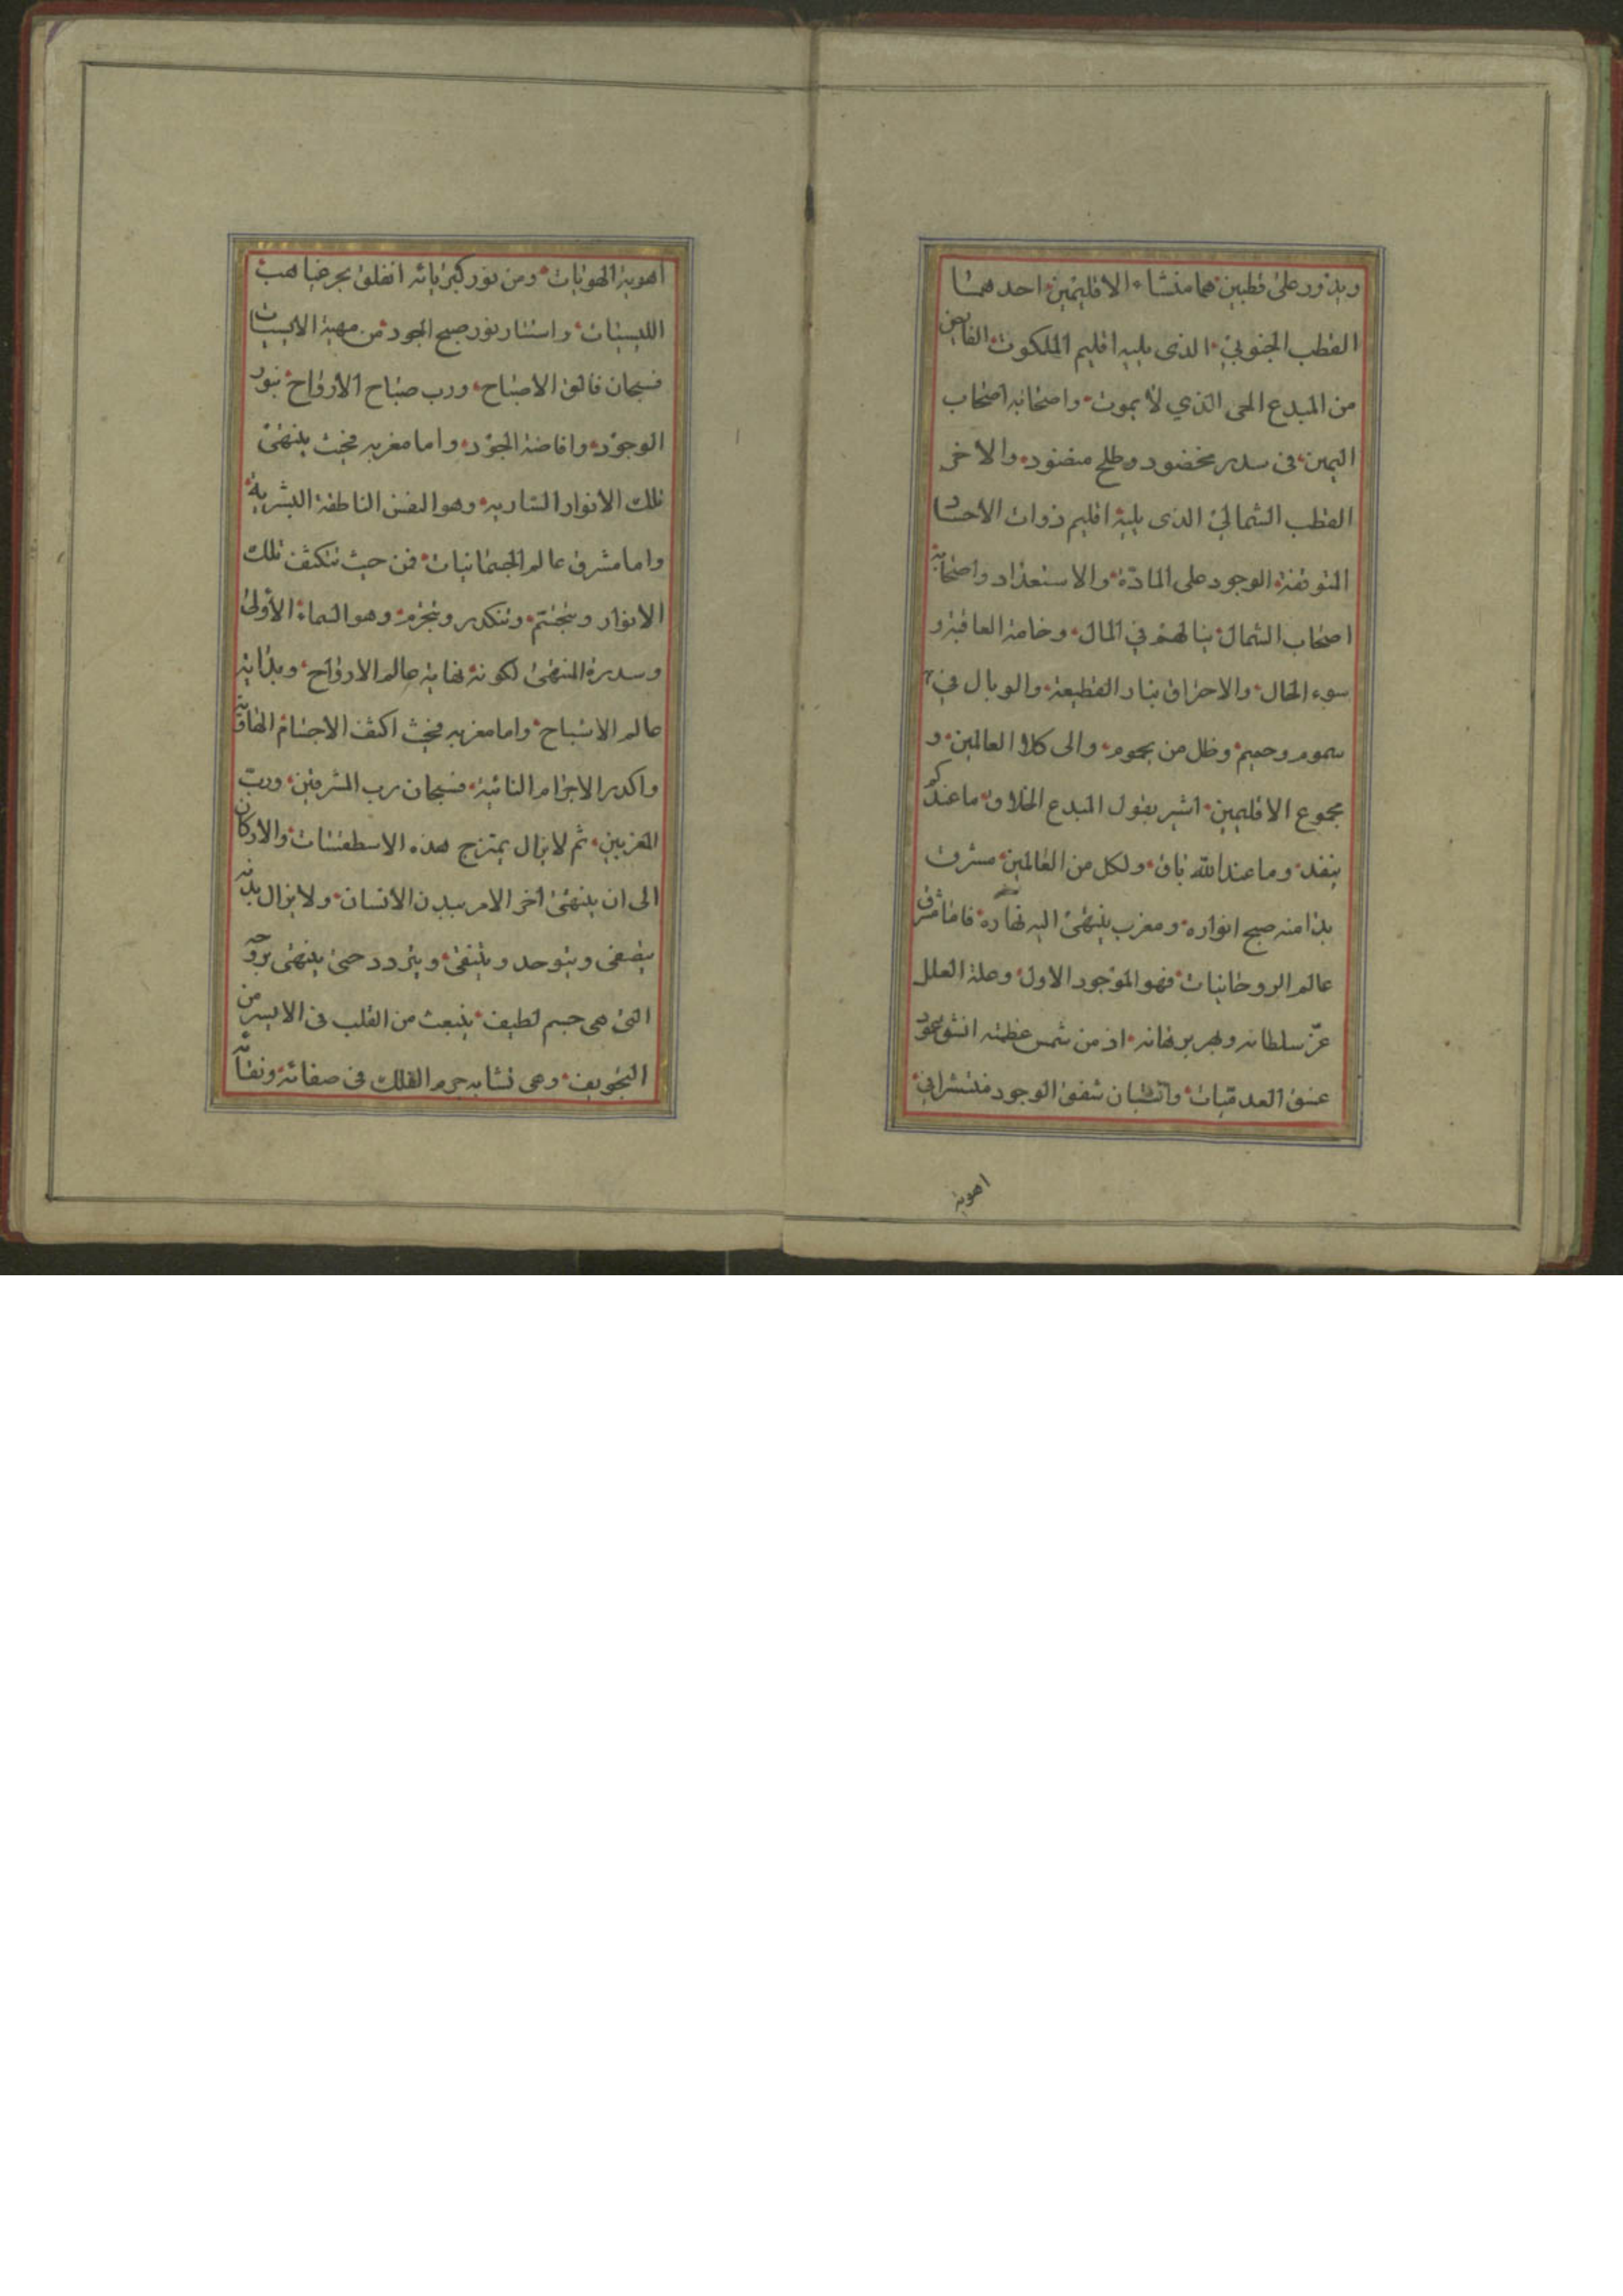 ويدور على قطبين هما منشاء الاقليمين احدهما
القطب الجنوبي الذي يليه اقليم الملكوت الفايض
من المبدع الحى الذي لا يموت واصحابه اصحاب
اليمين في سدر مخضود وطلح منضود والاخر
القطب الشمالي الذي يليه اقليم ذوات الاحساد
المتوقفة الوجود على المادة والاستعداد واصحابه
اصحاب الشمال بنالهم في المال وخامة العاقبة و
سوء الحال والاحتراق بنار القطيعة والوبال في
سموم وحميم وظل من يحموم والى كلا العالمين و
مجموع الاقليمين اشير بقول المبدع الخلاق ما عندكم
ينفد وما عند الله باق ولكل من العالمين مشرق
بدا منه صبح انواره ومغرب ينتهى اليه نهاره فاما مشرق
عالم الروحانيات فهو الموجود الاول وعلة العلل
عز سلطانه وبهر برهانه اذ من شمس عظمته انشق عمود
عسق العدميات شفق الوجود منتشرا في
اهوية
اهوية الهويات ومن نور كبريائه انفلق بحر غياهب
الليسيات واستنار نور صبح الجود من مهية الايسيات
فسبحان فالق الاصباح ورب صباح الارواح بنور
الوجود وافاضة الجود واما مغربه فحيث ينتهى
تلك الانوار السارية وهو النفس الناطقة البشرية
واما مشرق عالم الجسمانيات فمن حيث تتكثف تلك
الانوار وتتجسم وتتكدر وتتجرم وهو السماء الأولى
وسدرة المنتهى لكونه نهاية عالم الارواح وبداية
عالم الاشباح واما مغربه فحيث اكثف الاجسام الهاوية
واكدر الاجرام النائية فسبحان رب المشرقين ورب
المغربين ثم لا يزال يمتزج هذه الاسطقسات والاركان
الى ان ينتهى آخر الامر ببدن الانسان ولا يزال بدنه
يتصفى ويتوحد ويتنقى ويتردد حتى ينتهى بروحه
التى هى جسم لطيف ينبعث من القلب في الايسر من
التجويف وهى تشابه جرم الفلك في صفائه ونقائه